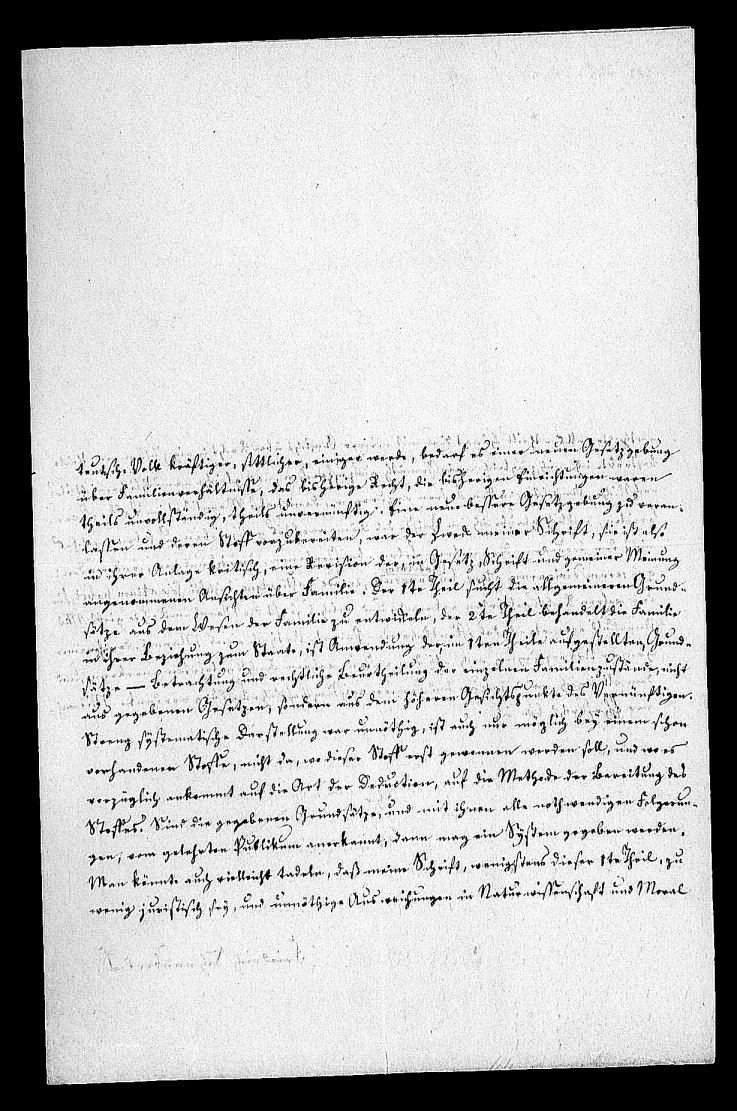 teutsche Volk kräftiger, sittlicher, einiger werde, bedarf es einer neuen Gesetzgebung
über Familienverhältnisse, das bisherige Recht, die bisherigen Einrichtungen waren
theils unvollständig, theils unvernünftig. Eine neue bessere Gesetzgebung zu veran-
lassen und deren Stoff vorzubereiten, war der Zweck meiner Schrift, sie ist also
in ihrer Anlage kritisch, eine Revision der, in Gesetz, Schrift und gemeiner Meinung
angenommenen Ansichten über Familie. Der 1te Theil sucht die allgemeineren Grund-
sätze aus dem Wesen der Familie zu entwickeln, der 2te Theil behandelt die Familie
in ihrer Beziehung zum Staate, ist Anwendung der im 1ten Theile aufgestellten Grund-
sätze — Betrachtung und rechtliche Beurtheilung der einzelnen Familienzustände, nicht
aus gegebenen Gesetzen, sondern aus dem höheren Gesichtspunkte des Vernünftigen.
Streng systematische Darstellung war unnöthig, ist auch nur möglich bey einem schon
vorhandenen Stoffe, nicht da, wo dieser Stoff erst gewonnen werden soll, und wo es
vorzüglich ankommt auf die Art der Deduction, auf die Methode der Bereitung des
Stoffes. Sind die gegebenen Grundsätze, und mit ihnen alle nothwendigen Folgerun-
gen, vom gelehrten Publikum anerkannt, dann mag ein System gegeben werden.
Man könnte auch vielleicht tadeln, daß meine Schrift, wenigstens dieser 1te Theil, zu
wenig juristisch sey, und unnöthige Ausweichungen in Naturwissenschaft und Moral